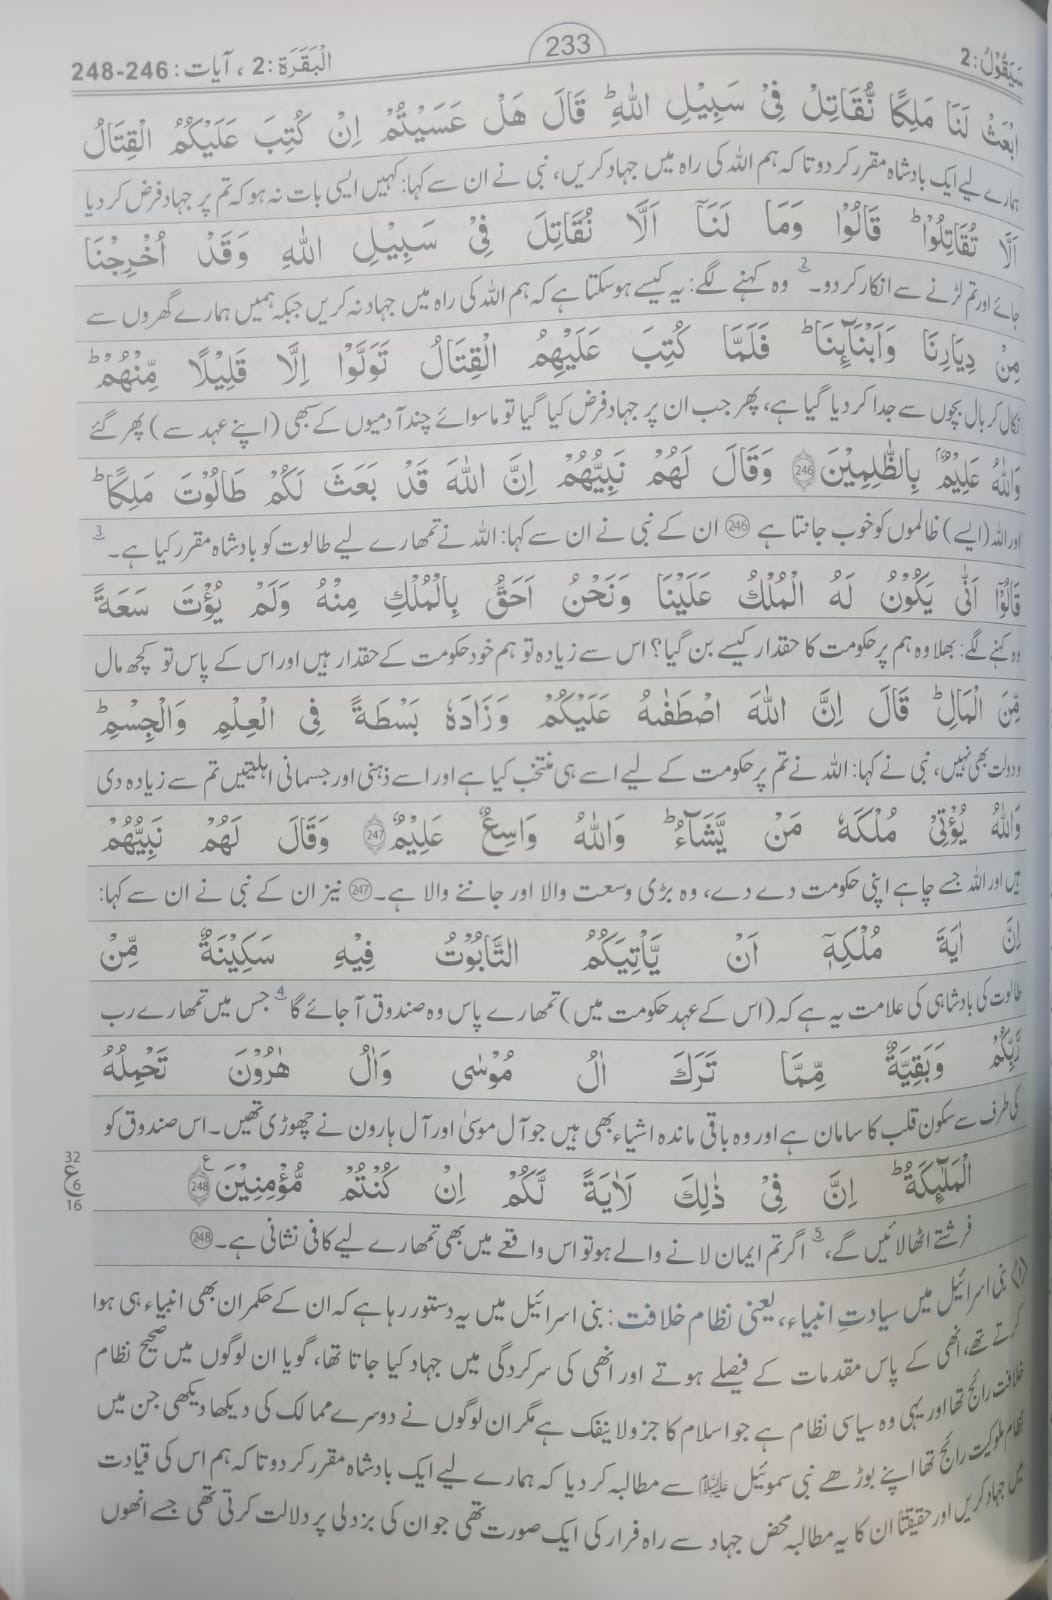 سَيَقُوْلُ: 2
233
اَلْبَقَرَة: 2 ، آیات: 246-248
ابْعَثْ لَنَا مَلِكًا نُّقَاتِلْ فِيْ سَبِيْلِ اللّٰهِ ؕ قَالَ هَلْ عَسَيْتُمْ اِنْ كُتِبَ عَلَيْكُمُ الْقِتَالُ
ہمارے لیے ایک بادشاہ مقرر کر دو تاکہ ہم اللہ کی راہ میں جہاد کریں، نبی نے ان سے کہا: کہیں ایسی بات نہ ہو کہ تم پر جہاد فرض کر دیا
اَلَّا تُقَاتِلُوْا ؕ قَالُوْا وَمَا لَنَآ اَلَّا نُقَاتِلَ فِيْ سَبِيْلِ اللّٰهِ وَقَدْ اُخْرِجْنَا
جائے اور تم لڑنے سے انکار کر دو۔ 2 وہ کہنے لگے: یہ کیسے ہوسکتا ہے کہ ہم اللہ کی راہ میں جہاد نہ کریں جبکہ ہمیں ہمارے گھروں سے
مِنْ دِيَارِنَا وَاَبْنَآئِنَا ؕ فَلَمَّا كُتِبَ عَلَيْهِمُ الْقِتَالُ تَوَلَّوْا اِلَّا قَلِيْلًا مِّنْهُمْ ؕ
نکال کر بال بچوں سے جدا کر دیا گیا ہے، پھر جب ان پر جہاد فرض کیا گیا تو ماسوائے چند آدمیوں کے سبھی (اپنے عہد سے) پھر گئے
وَاللّٰهُ عَلِيْمٌۢ بِالظّٰلِمِيْنَ 246 وَقَالَ لَهُمْ نَبِيُّهُمْ اِنَّ اللّٰهَ قَدْ بَعَثَ لَكُمْ طَالُوْتَ مَلِكًا ؕ
اور اللہ (ایسے) ظالموں کو خوب جانتا ہے 246 ان کے نبی نے ان سے کہا: اللہ نے تمھارے لیے طالوت کو بادشاہ مقرر کیا ہے۔ 3
قَالُوْٓا اَنّٰى يَكُوْنُ لَهُ الْمُلْكُ عَلَيْنَا وَنَحْنُ اَحَقُّ بِالْمُلْكِ مِنْهُ وَلَمْ يُؤْتَ سَعَةً
وہ کہنے لگے: بھلا وہ ہم پر حکومت کا حقدار کیسے بن گیا؟ اس سے زیادہ تو ہم خود حکومت کے حقدار ہیں اور اس کے پاس تو کچھ مال
مِّنَ الْمَالِ ؕ قَالَ اِنَّ اللّٰهَ اصْطَفٰىهُ عَلَيْكُمْ وَزَادَهٗ بَسْطَةً فِي الْعِلْمِ وَالْجِسْمِ ؕ
و دولت بھی نہیں، نبی نے کہا: اللہ نے تم پر حکومت کے لیے اسے ہی منتخب کیا ہے اور اسے ذہنی اور جسمانی اہلیتیں تم سے زیادہ دی
وَاللّٰهُ يُؤْتِيْ مُلْكَهٗ مَنْ يَّشَآءُ ؕ وَاللّٰهُ وَاسِعٌ عَلِيْمٌ 247 وَقَالَ لَهُمْ نَبِيُّهُمْ
ہیں اور اللہ جسے چاہے اپنی حکومت دے دے، وہ بڑی وسعت والا اور جاننے والا ہے۔ 247 نیز ان کے نبی نے ان سے کہا:
اِنَّ اٰيَةَ مُلْكِهٖٓ اَنْ يَّاْتِيَكُمُ التَّابُوْتُ فِيْهِ سَكِيْنَةٌ مِّنْ
طالوت کی بادشاہی کی علامت یہ ہے کہ (اس کے عہد حکومت میں) تمھارے پاس وہ صندوق آ جائے گا 4 جس میں تمھارے رب
رَّبِّكُمْ وَبَقِيَّةٌ مِّمَّا تَرَكَ اٰلُ مُوْسٰى وَاٰلُ هٰرُوْنَ تَحْمِلُهُ
کی طرف سے سکون قلب کا سامان ہے اور وہ باقی ماندہ اشیاء بھی ہیں جو آل موسیٰ اور آل ہارون نے چھوڑی تھیں۔ اس صندوق کو
الْمَلٰٓئِكَةُ ؕ اِنَّ فِيْ ذٰلِكَ لَاٰيَةً لَّكُمْ اِنْ كُنْتُمْ مُّؤْمِنِيْنَ 248 ع
32
ع 6
16
فرشتے اٹھا لائیں گے، 5 اگر تم ایمان لانے والے ہو تو اس واقعے میں بھی تمھارے لیے کافی نشانی ہے۔ 248
بنی اسرائیل میں سیادتِ انبیاء، یعنی نظام خلافت: بنی اسرائیل میں یہ دستور رہا ہے کہ ان کے حکمران بھی انبیاء ہی ہوا
کرتے تھے، انھی کے پاس مقدمات کے فیصلے ہوتے اور انھی کی سرکردگی میں جہاد کیا جاتا تھا، گویا ان لوگوں میں صحیح نظام
خلافت رائج تھا اور یہی وہ سیاسی نظام ہے جو اسلام کا جزو لاینفک ہے مگر ان لوگوں نے دوسرے ممالک کی دیکھا دیکھی جن میں
نظام ملوکیت رائج تھا اپنے بوڑھے نبی سموئیل علیہ السلام سے مطالبہ کر دیا کہ ہمارے لیے ایک بادشاہ مقرر کر دو تاکہ ہم اس کی قیادت
میں جہاد کریں اور حقیقتاً ان کا یہ مطالبہ محض جہاد سے راہ فرار کی ایک صورت تھی جو ان کی بزدلی پر دلالت کرتی تھی جسے انھوں